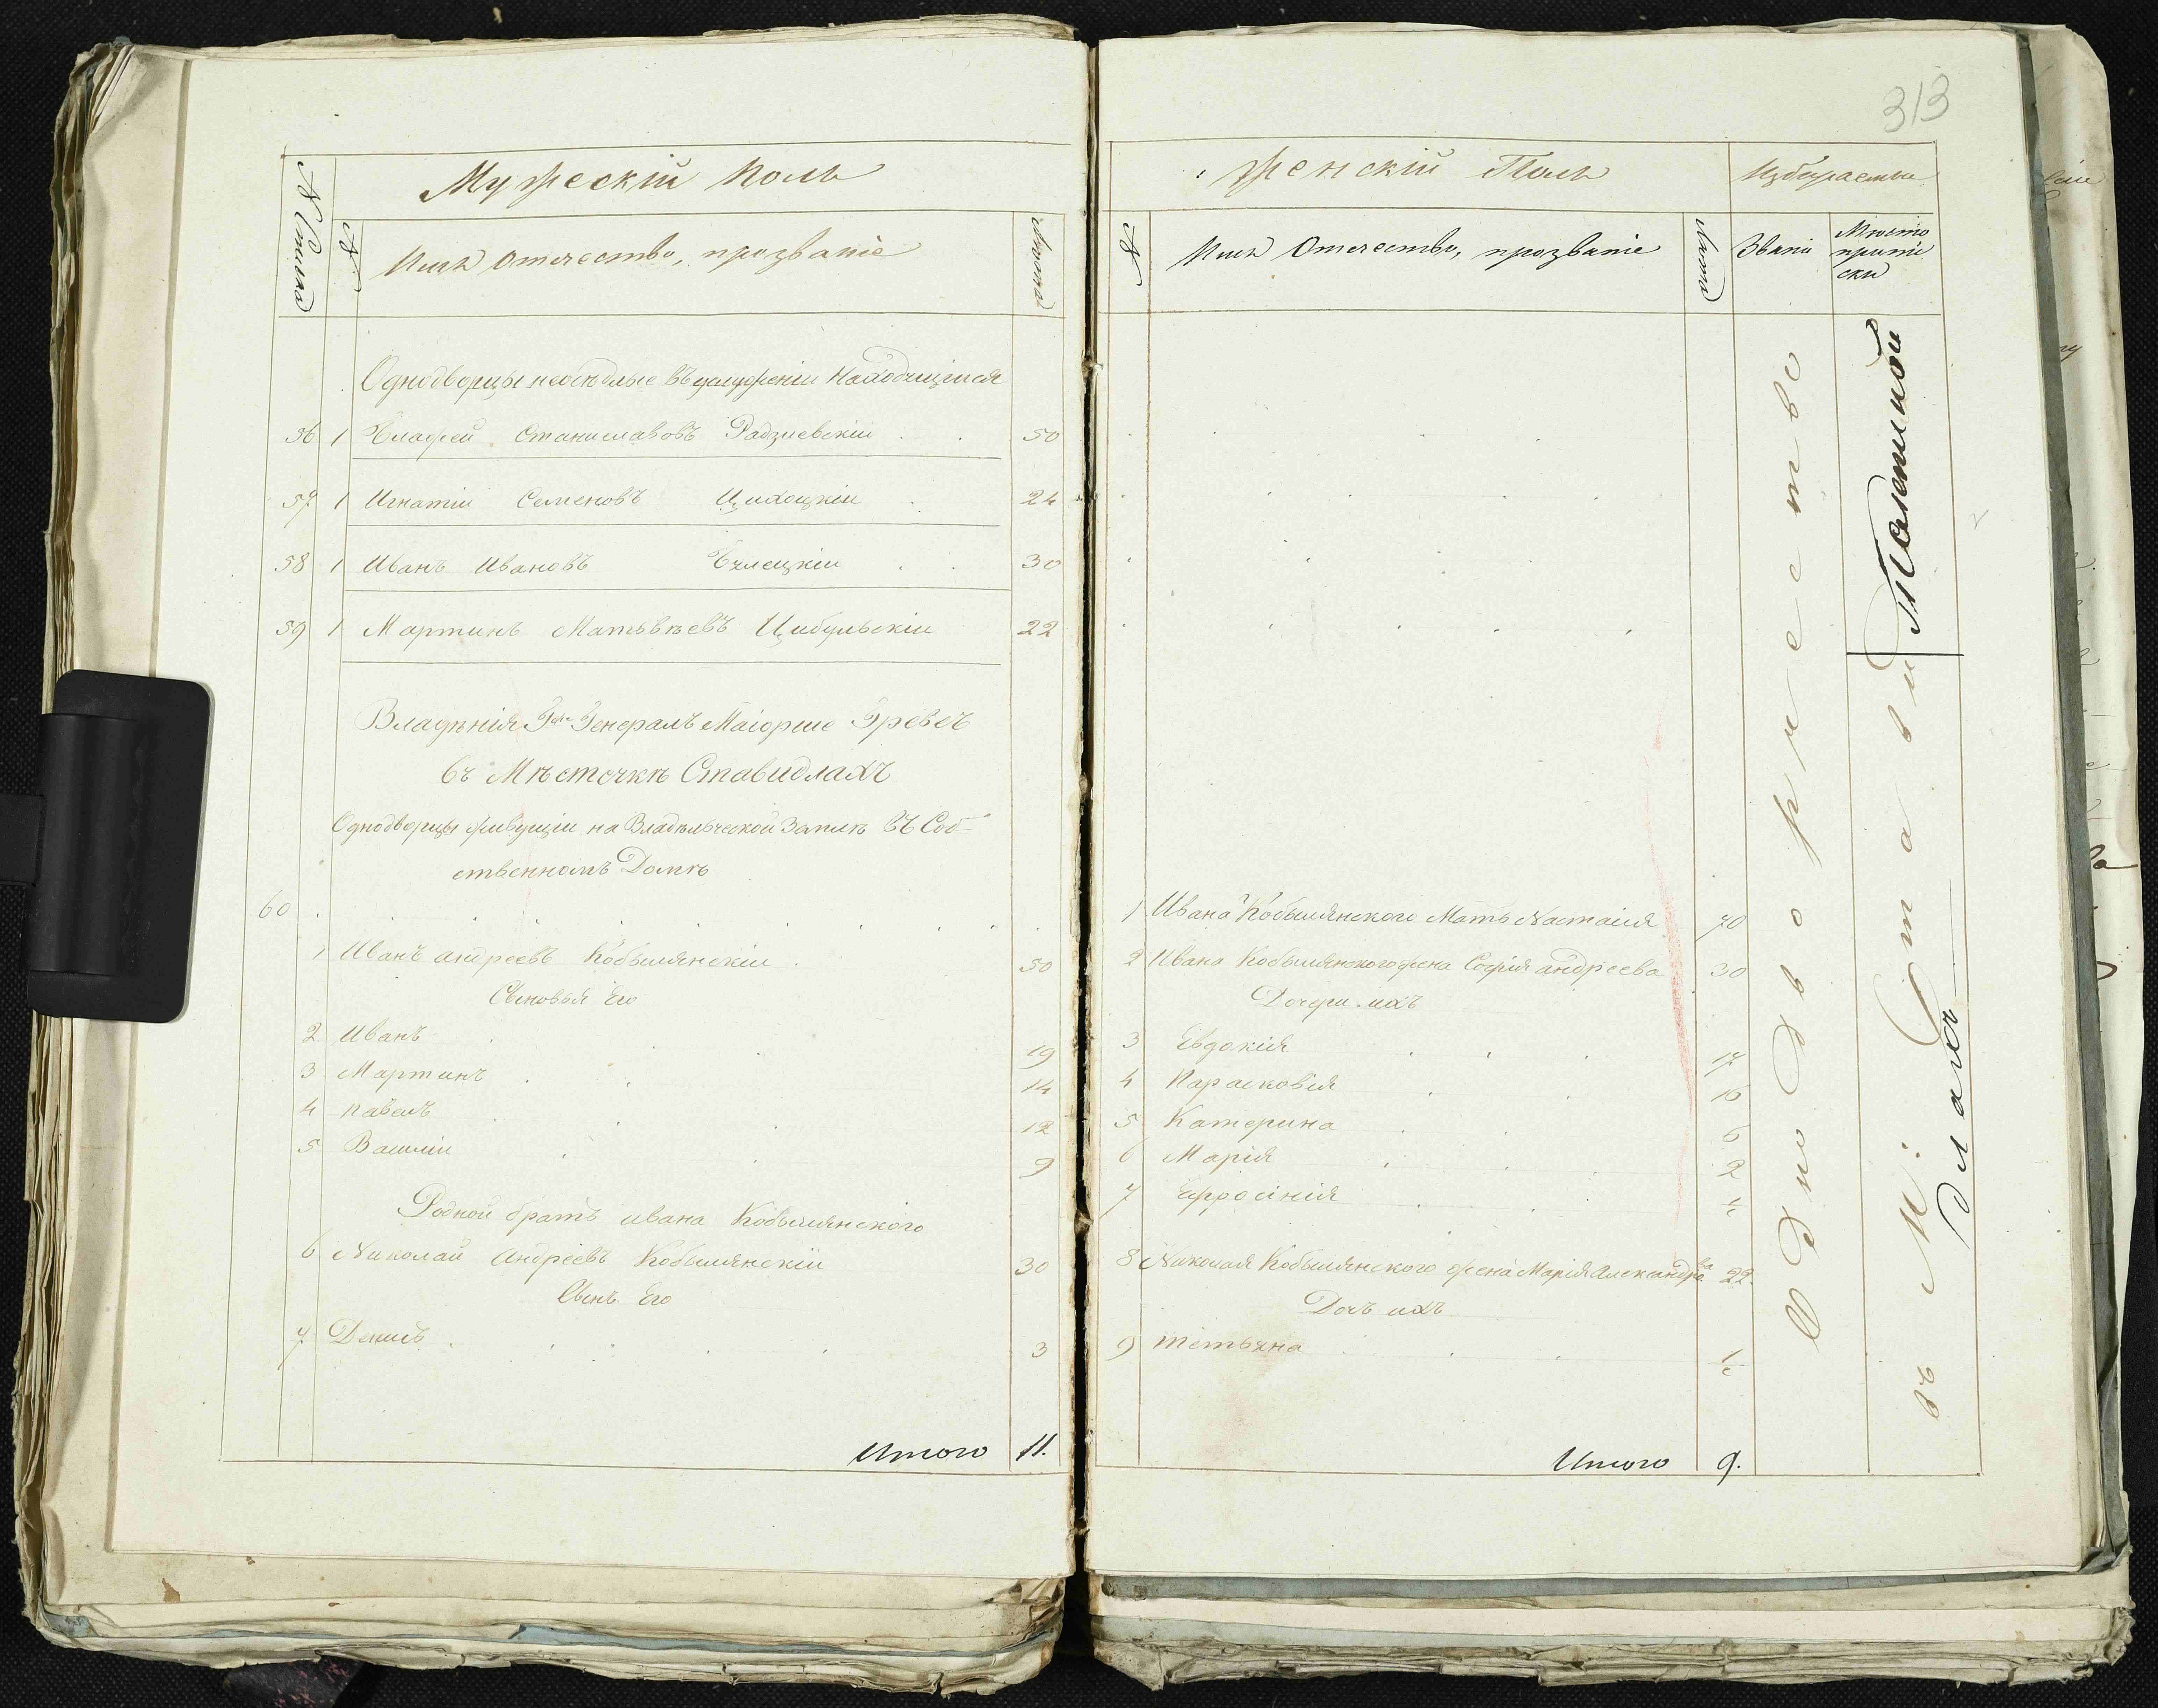 313
Мужескій Полъ
№ Списка
№
Имя Отчество, прозваніе
Лѣта
Однодворцы неосѣдлые въ услуженіи находящіися
56 1 Станиславовъ Радзиевскій 50
57 1 Игнатій Семеновъ Цихоцкій 24
58 1 Иванъ Ивановъ 30
59 1 Мартинъ Матвѣевъ Цибульскій 22
Владѣнія Генералъ Маіорше Гревсъ
въ Мѣстечкѣ Ставидлахъ
Однодворцы живущіи на Владѣльческой Землѣ въ Соб-
ственномъ Домѣ
60
1 Иванъ андреевъ Кобылянскій 50
Сыновья Его
2 Иванъ 19
3 Мартинъ 14
4 павелъ 12
5 Василій 9
Родной братъ ивана Кобылянского
6 Николай Андреевъ Кобылянскій 30
Сынъ Его
7 Денисъ 3
Итого 11.
Женскій Полъ
Избираемыя
№
Имя Отечество, прозваніе
Лѣта
Званіе
Мѣсто
припи
ски
1 Ивана Кобылянского Мать Настасія 70
2 Ивана Кобылянского жена Софія андреева 30
Дочери ихъ
3 Евдокія 17
4 Парасковія 16
5 Катерина 6
6 Марія 2
7 Ефросінія
8 Николая Кобылянского жена Марія Александрова 22
Дочъ ихъ
9 тетьяна
Итого 9.
Однодворческое
въ М: Стави
длахъ